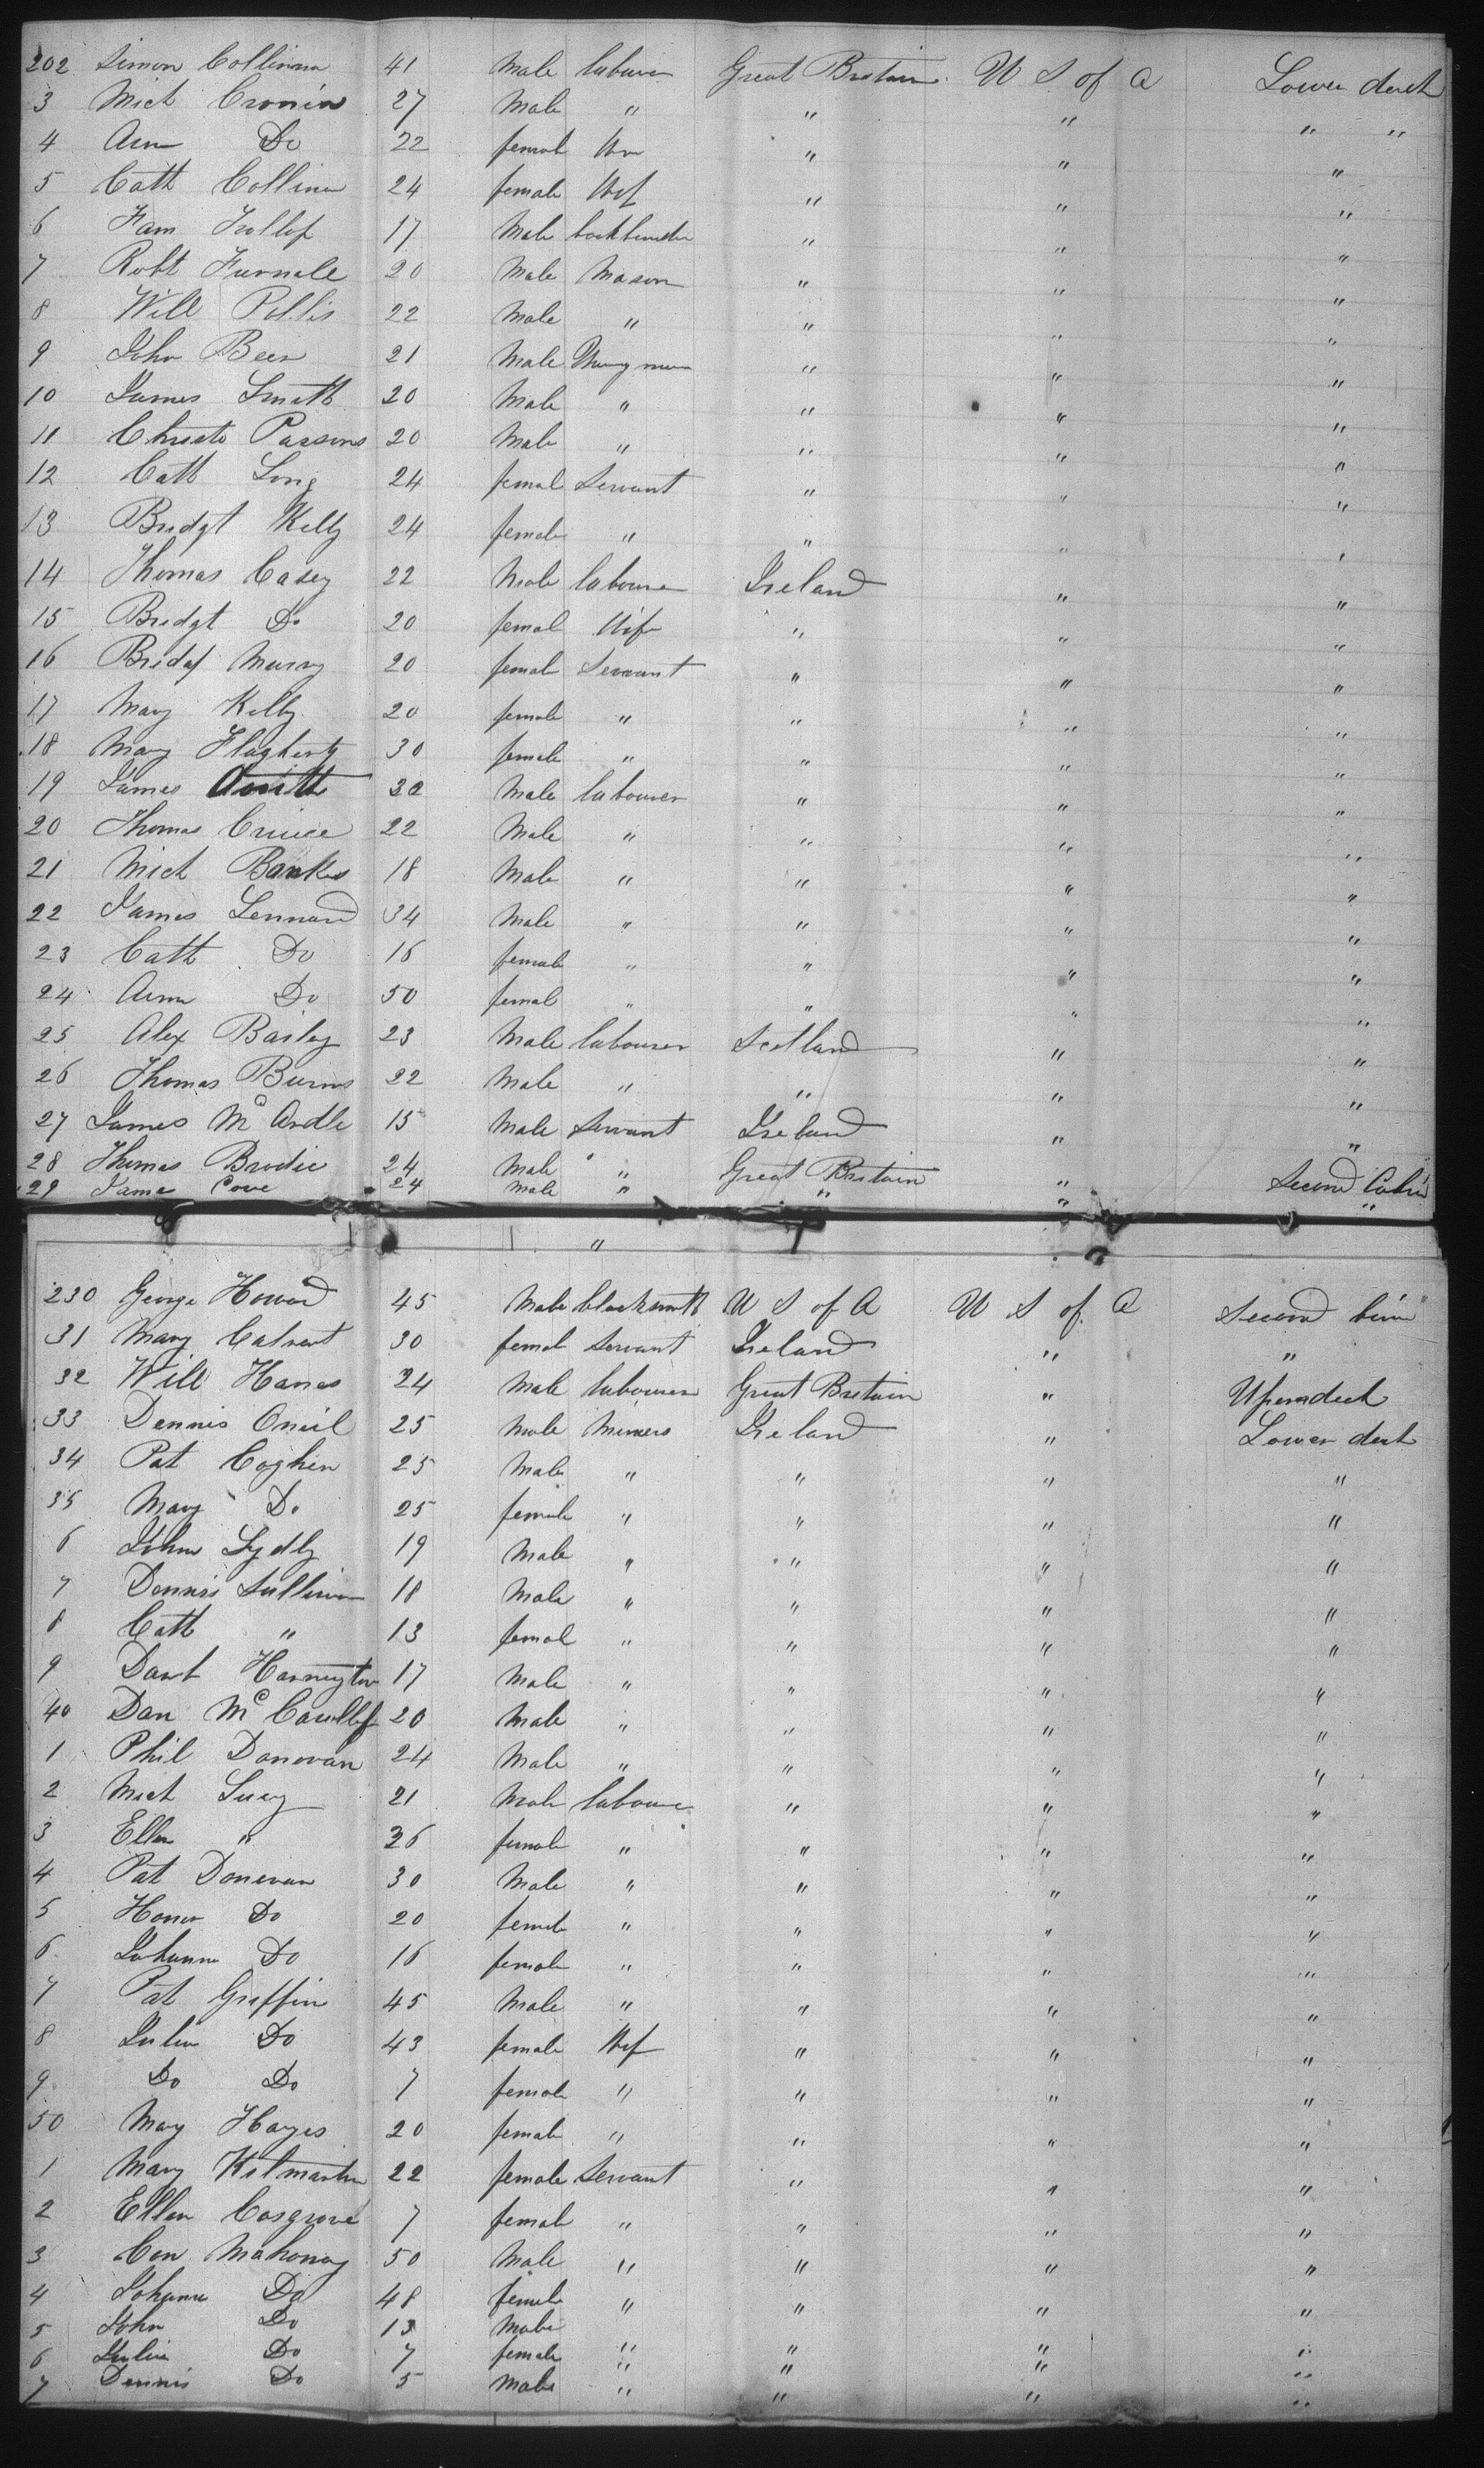 202 Simon Collinan 41 Male labourer Great Britain U S of A Lower deck
3 Mich Cronin 27 Male " " " " "
4 Ann Do 22 female " " "
5 Cath 24 female Wif " " "
6 17 Male bookbinder " " "
7 Robt Furnale 20 Male Mason " " "
8 Will Pollis 22 Male " " " "
9 John Beer 21 Male " " "
10 James Smith 20 Male " " " "
11 Christo Parsons 20 Male " " " "
12 Cath Long 24 femal Servant " " "
13 Bridgt Kelly 24 female " " " "
14 Thomas Casey 22 Male labourer Ireland " "
15 Bridgt Do 20 femal Wife " " "
16 Bridgt Murry 20 femal Servant " " "
17 Mary Kelly 20 female " " " "
18 Mary Flagherty 30 female " " " "
19 James 30 Male labourer " " "
20 Thomas Cruice 22 Male " " " "
21 Mich Bankes 18 Male " " " "
22 James Lennard 34 Male " " " "
23 Cath Do 16 female " " " "
24 Ann Do 50 femal " " " "
25 Alex Bailey 23 Male labourer Scotland " "
26 Thomas Burns 22 Male " " " "
27 James Mc Ardle 15 Male Servant Ireland " "
28 Thomas Brodie 24 Male " Great Britain " Second Cabin
29 James Cove 24 Male " " " "
"
230 George Howard 45 Male blacksmith U S of A U S of A Second
31 Mary Calvert 30 femal Servant Ireland " "
32 Will Hanes 24 Male labourer Great Britain " Upperdeck
33 Dennis Oneil 25 Male Miners Ireland " Lower deck
34 Pat Coghin 25 Male " " " "
35 Mary Do 25 female " " " "
6 John 19 Male " " " "
7 Dennis Sullivan 18 Male " " " "
8 Cath " 13 femal " " " "
9 Danl Harrington 17 Male " " " "
40 Dan 20 Male " " " "
1 Phil Donovan 24 Male " " " "
2 Mich Lucy 21 Male laboure " " "
3 Ellen " 26 female " " " "
4 Pat Donevan 30 Male " " " "
5 Honor Do 20 female " " " "
6 Johanna Do 16 female " " " "
7 Pat Griffin 45 Male " " " "
8 Julia Do 43 female Wif " " "
9 Do Do 7 female " " " "
50 Mary Hayes 20 female " " " "
1 Mary Kilmartin 22 female Servant " " "
2 Ellen Cosgrove 7 female " " " "
3 Con Mahoney 50 Male " " " "
4 Johana Do 48 female " " " "
5 John Do 13 Male " " " "
6 Julia Do 7 female " " " "
7 Dennis Do 5 Male " " " "